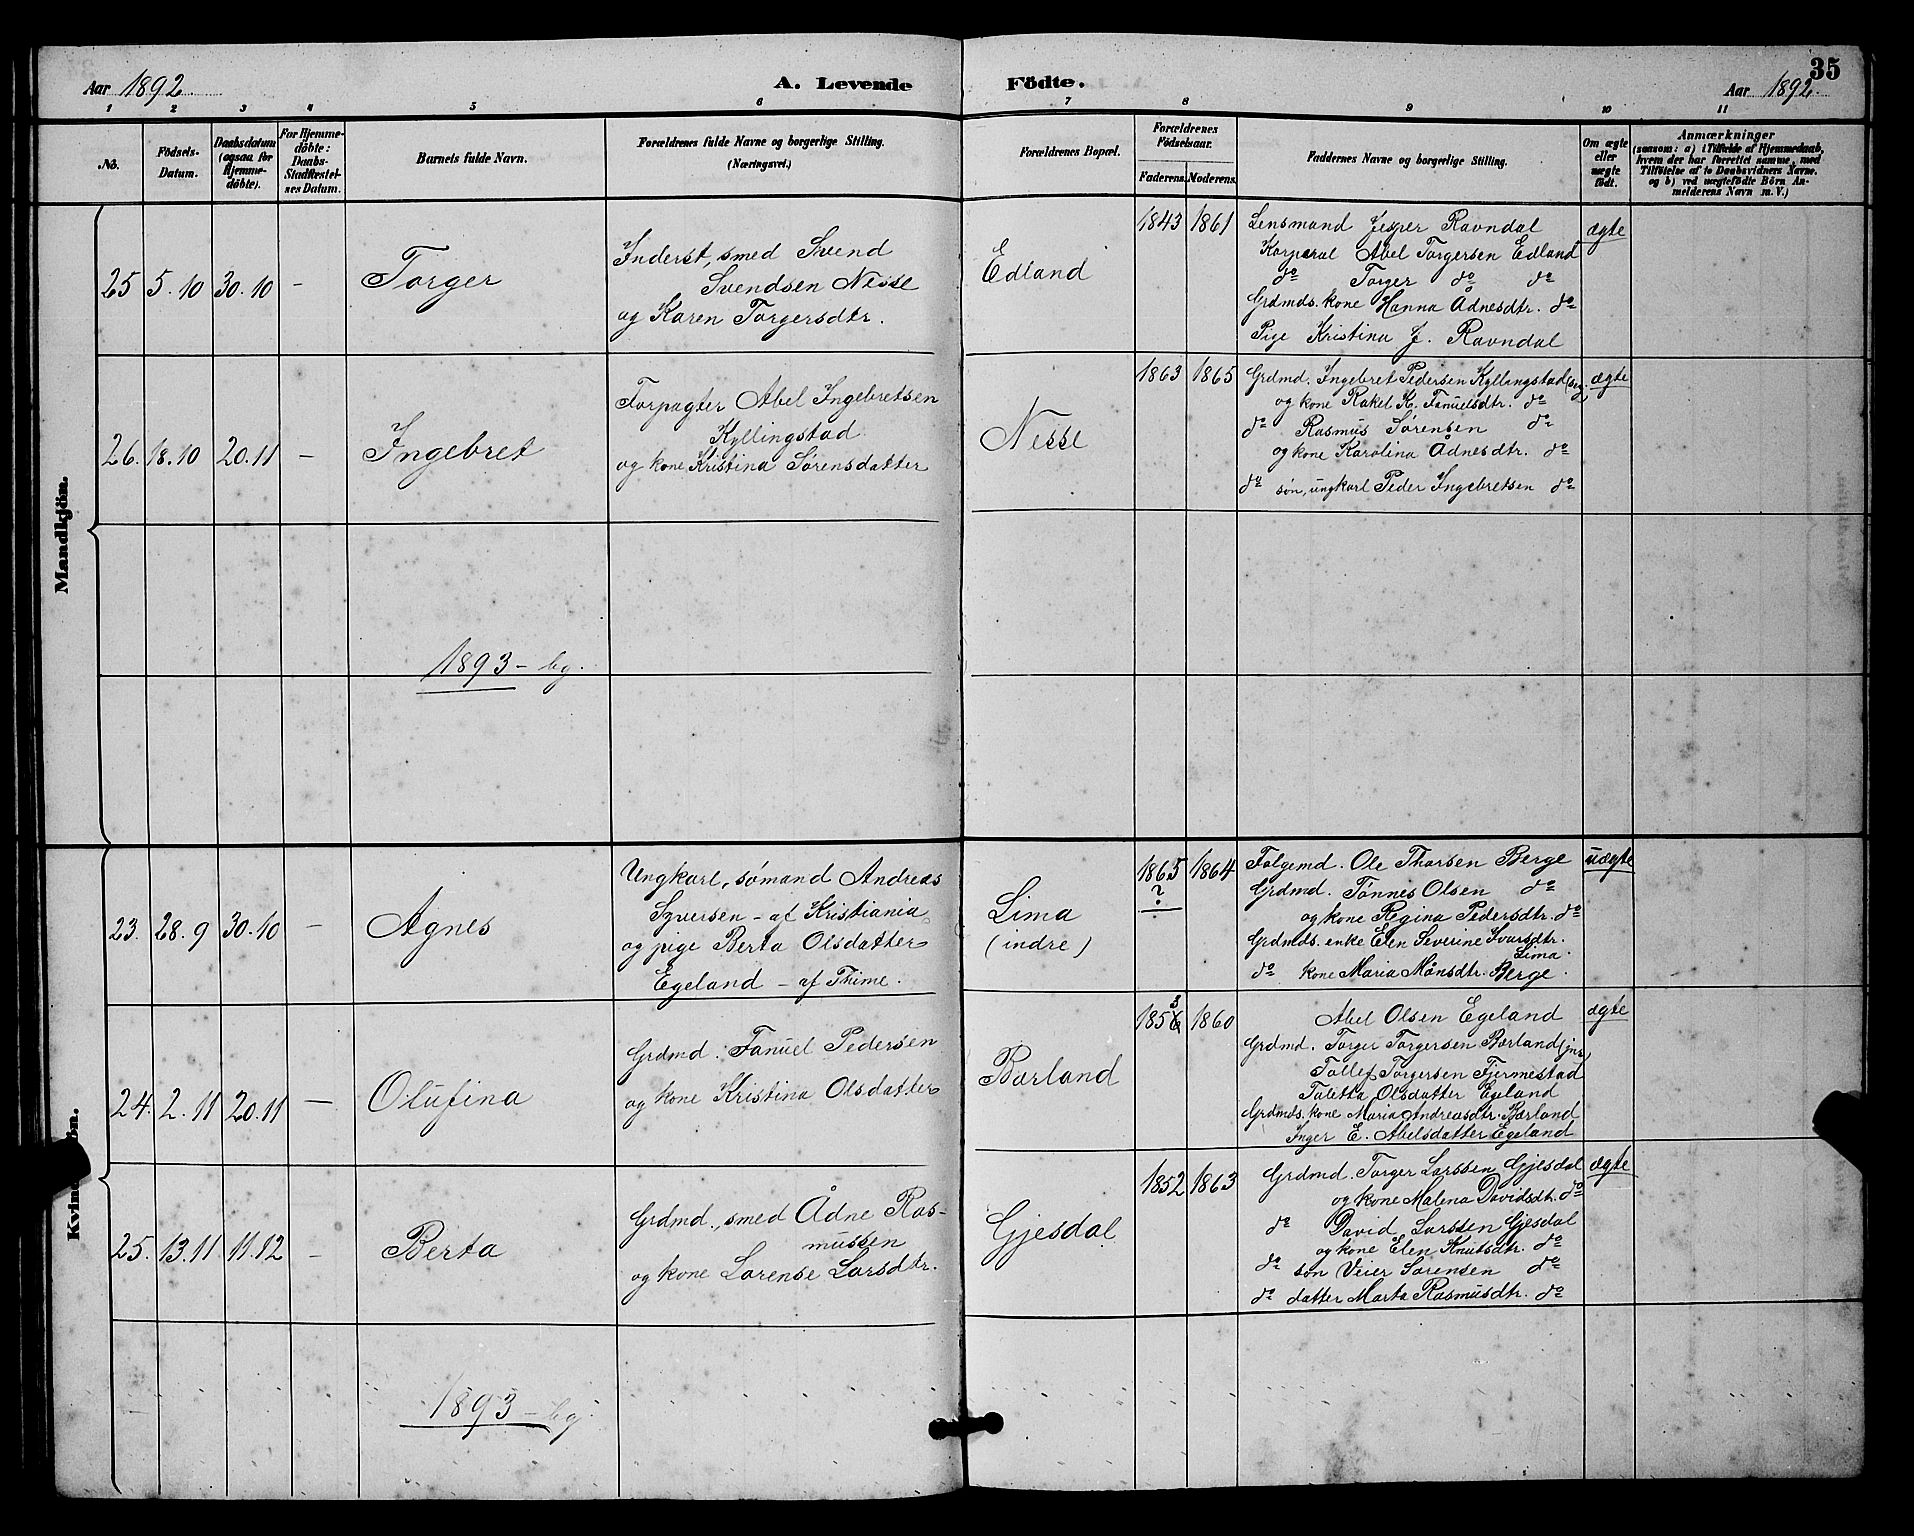 Aar 1892
A. Levende Födte.
Aar 1892.
35
1 2 3 4 5 6 7 8 9 10 11
No.
Födsels-
Datum.
Daabsdatum
(ogsaa for
Hjemme-
döbte).
For Hjemme-
döbte:
Daabs-
Stadfæstel-
nes Datum.
Barnets fulde Navn.
Forældrenes fulde Navne og borgerlige Stilling.
(Næringsvei.)
Forældrenes Bopæl.
Forældrenes
Födselsaar.
Faderens. Moderens.
Faddernes Navne og borgerlige Stilling.
Om ægte
eller
uægte
födt.
Anmærkninger
(saasom: a) i Tilfælde af Hjemmedaab,
hvem der har forrettet samme, med
Tilföielse af to Daabsvidners Navne.
og b) ved uægtefödte Börn An-
melderens Navn m. V.)
Mandkjön.
25 5.10 30.10 -
Torger
Inderst, smed Svend
Svendsen Nesse
og Karen Torgersdtr.
Edland
1843 1861
Lensmand Jesper Ravndal
Korporal Abel Torgersen Edland
do Torger do do
Grdmds. kone Hanna Ådnesdtr. do
Pige Kristina J. Ravndal
ægte
26. 18.10 20.11 -
Ingebret
Forpagter Abel Ingebretsen
Kyllingstad
og kone Kristina Sørensdatter
Nesse
1863 1865
Grdmd. Ingebret Pedersen Kyllingstad
og kone Rakel K. Fanuelsdtr. do
do Rasmus Sørensen do
og kone Karolina Ådnesdtr. do
do søn, ungkarl Peder Ingebretsen do
ægte
1893 - bg.
Kvindekjön.
23. 28.9 30.10 -
Agnes
Ungkarl, sømand Andreas
Syversen - af Kristiania
og pige Berta Olsdatter
Egeland - af Thime.
Lima
(indre)
1865 1864
?
Folgemd. Ole Thorsen Berge
Grdmd. Tønnes Olsen do
og kone Regina Pedersdtr. do
Grdmds. enke Elen Severine Ivarsdtr.
Lima.
do kone Maria Månsdtr. Berge.
uægte
24. 2.11 20.11 -
Olufina
Grdmd. Fanuel Pedersen
og kone Kristina Olsdatter
Bærland
3
1856 1860
Abel Olsen Egeland
Grdmd. Torger Torgersen Bærland (jnr)
Tollef Torgersen Fjermestad
Taletta Olsdatter Egeland
Grdmds. kone Maria Andreasdtr. Bærland
Inger E. Abelsdatter Egeland
ægte
25. 13.11 11.12 -
Berta
Grdmd., smed Ådne Ras-
mussen
og kone Lorense Larsdtr.
Gjesdal
1852 1863
Grdmd. Torger Larssen Gjesdal
og kone Malena Davidsdtr. do
do David Larssen Gjesdal
og kone Elen Knutsdtr. do
do søn Veier Sørensen do
do datter Marta Rasmusdtr. do
ægte
1893 - bg.